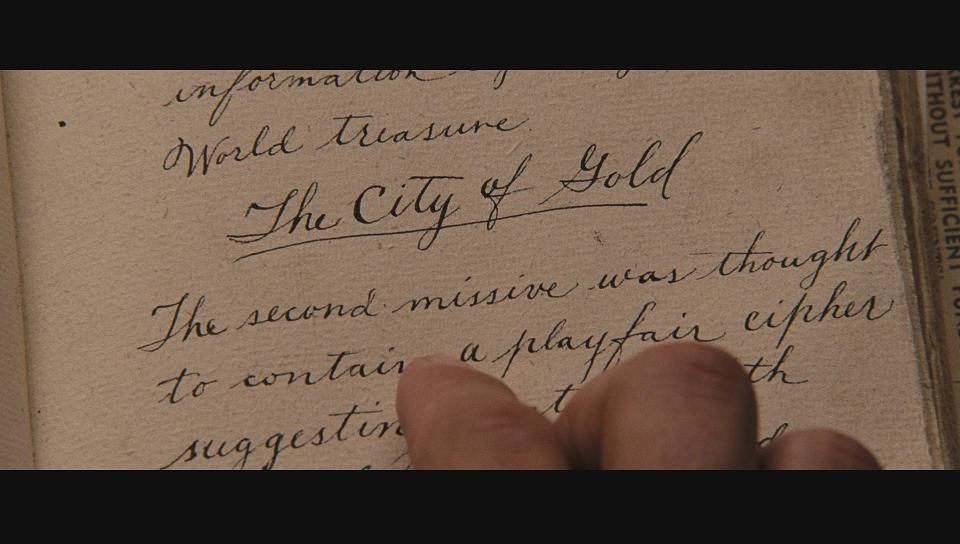 information
World treasure
The City of Gold
The second missive was thought
to contain a playfair cipher
suggesting
ITHOUT SUFFICIENT